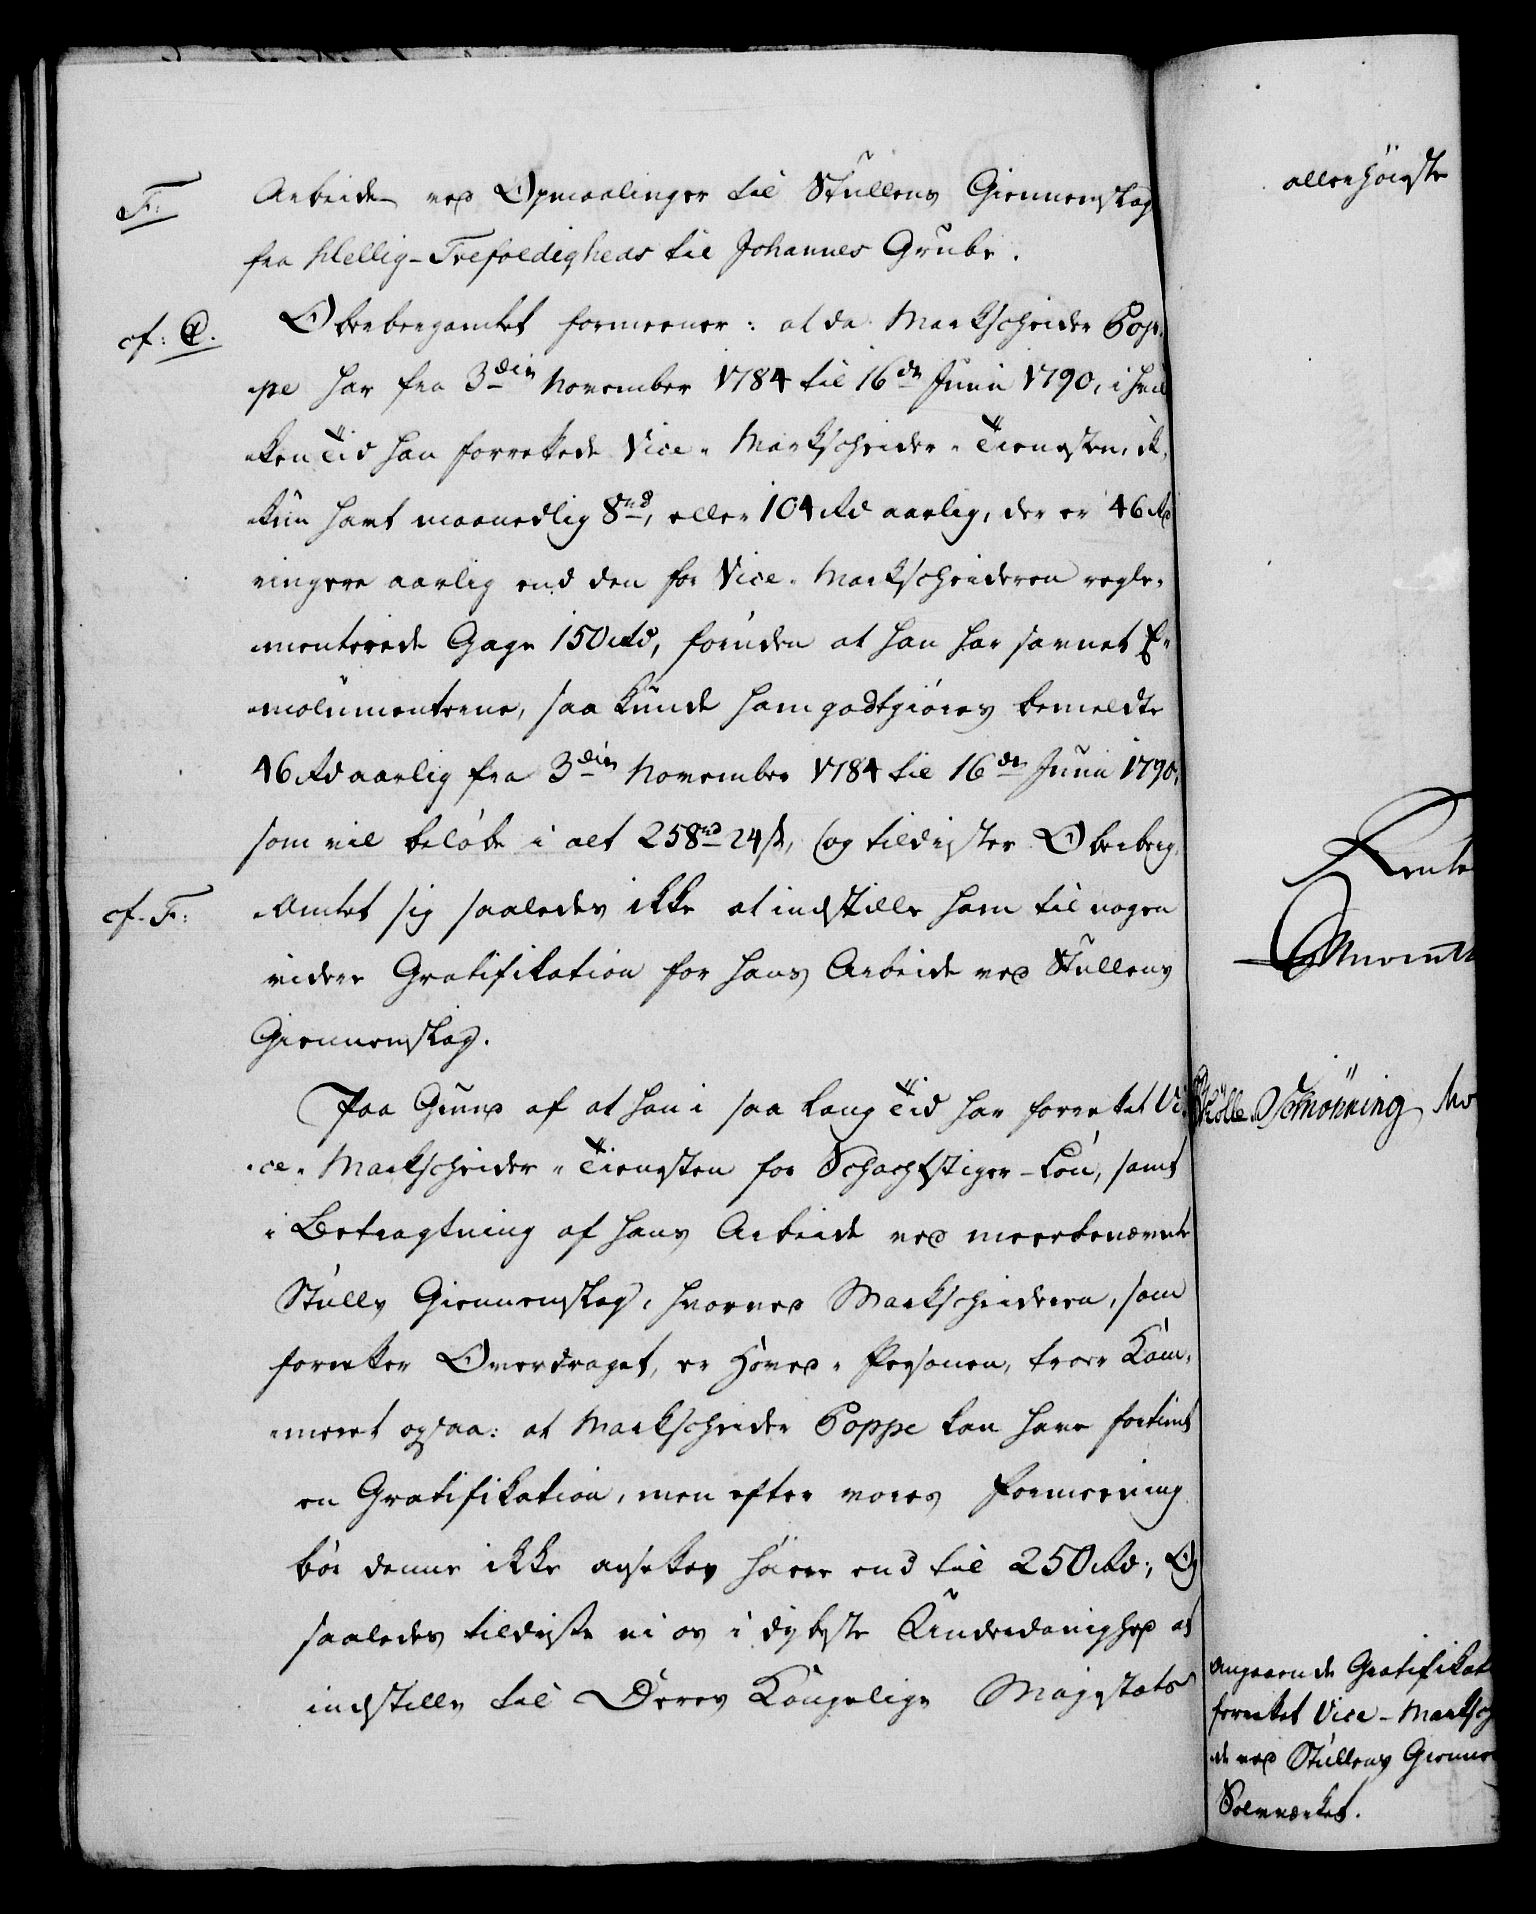 F: Arbeide ved Opmaalinger til Stullens Giennemslag
fra Hellig-Trefoldigheds til Johannes Grube.
cf: C. Oberbergamtet formeener: at da Markscheider Pop-
pe har fra 3die November 1784 til 16de Junii 1790, i hvil-
ken Tid han forrettede Vice-Markscheider-Tienesten, ik-
kun havt maanedlig 8rd, eller 104 Rd aarlig, der er 46 Rd
ringere aarlig end den for Vice-Markscheideren regle-
menterede Gage 150 Rd, foruden at han har savnet E-
molumenterne, saa kunde ham godtgiöres bemeldte
46 Rd aarlig fra 3die November 1784 til 16de Junii 1790,
som vil belöbe i alt 258rd 24 s, (og tildrister Oberberg-
cf. F: Amtet sig saaledes ikke at indstille ham til nogen
videre Gratifikation for hans Arbeide ved Stullens
Giennemslag.
Paa Grund af at han i saa lang Tid har forrettet Vi-
ce-Markscheider-Tienesten for Schachtstiger-Lön, samt
i Betragtning af hans Arbeide ved meerbenævnte
Stulls Giennemslag, hvorved Markscheideren, som
forretter Overdraget, er Hoved-Personen, troer Kam-
meret ogsaa: at Markscheider Poppe kan have fortient
en Gratifikation, men efter vores Formeening
bör denne ikke ansettes höiere end til 250 Rd; Og
saaledes tildriste vi os i dybeste Underdanighed at
indstille til Deres Kongelige Majestæts
allerhöieste
Rente
Schönning
angaaende Gratifikat
forrettet Vice-Marksch
de ved Stullens Gienne
Sølvværket.